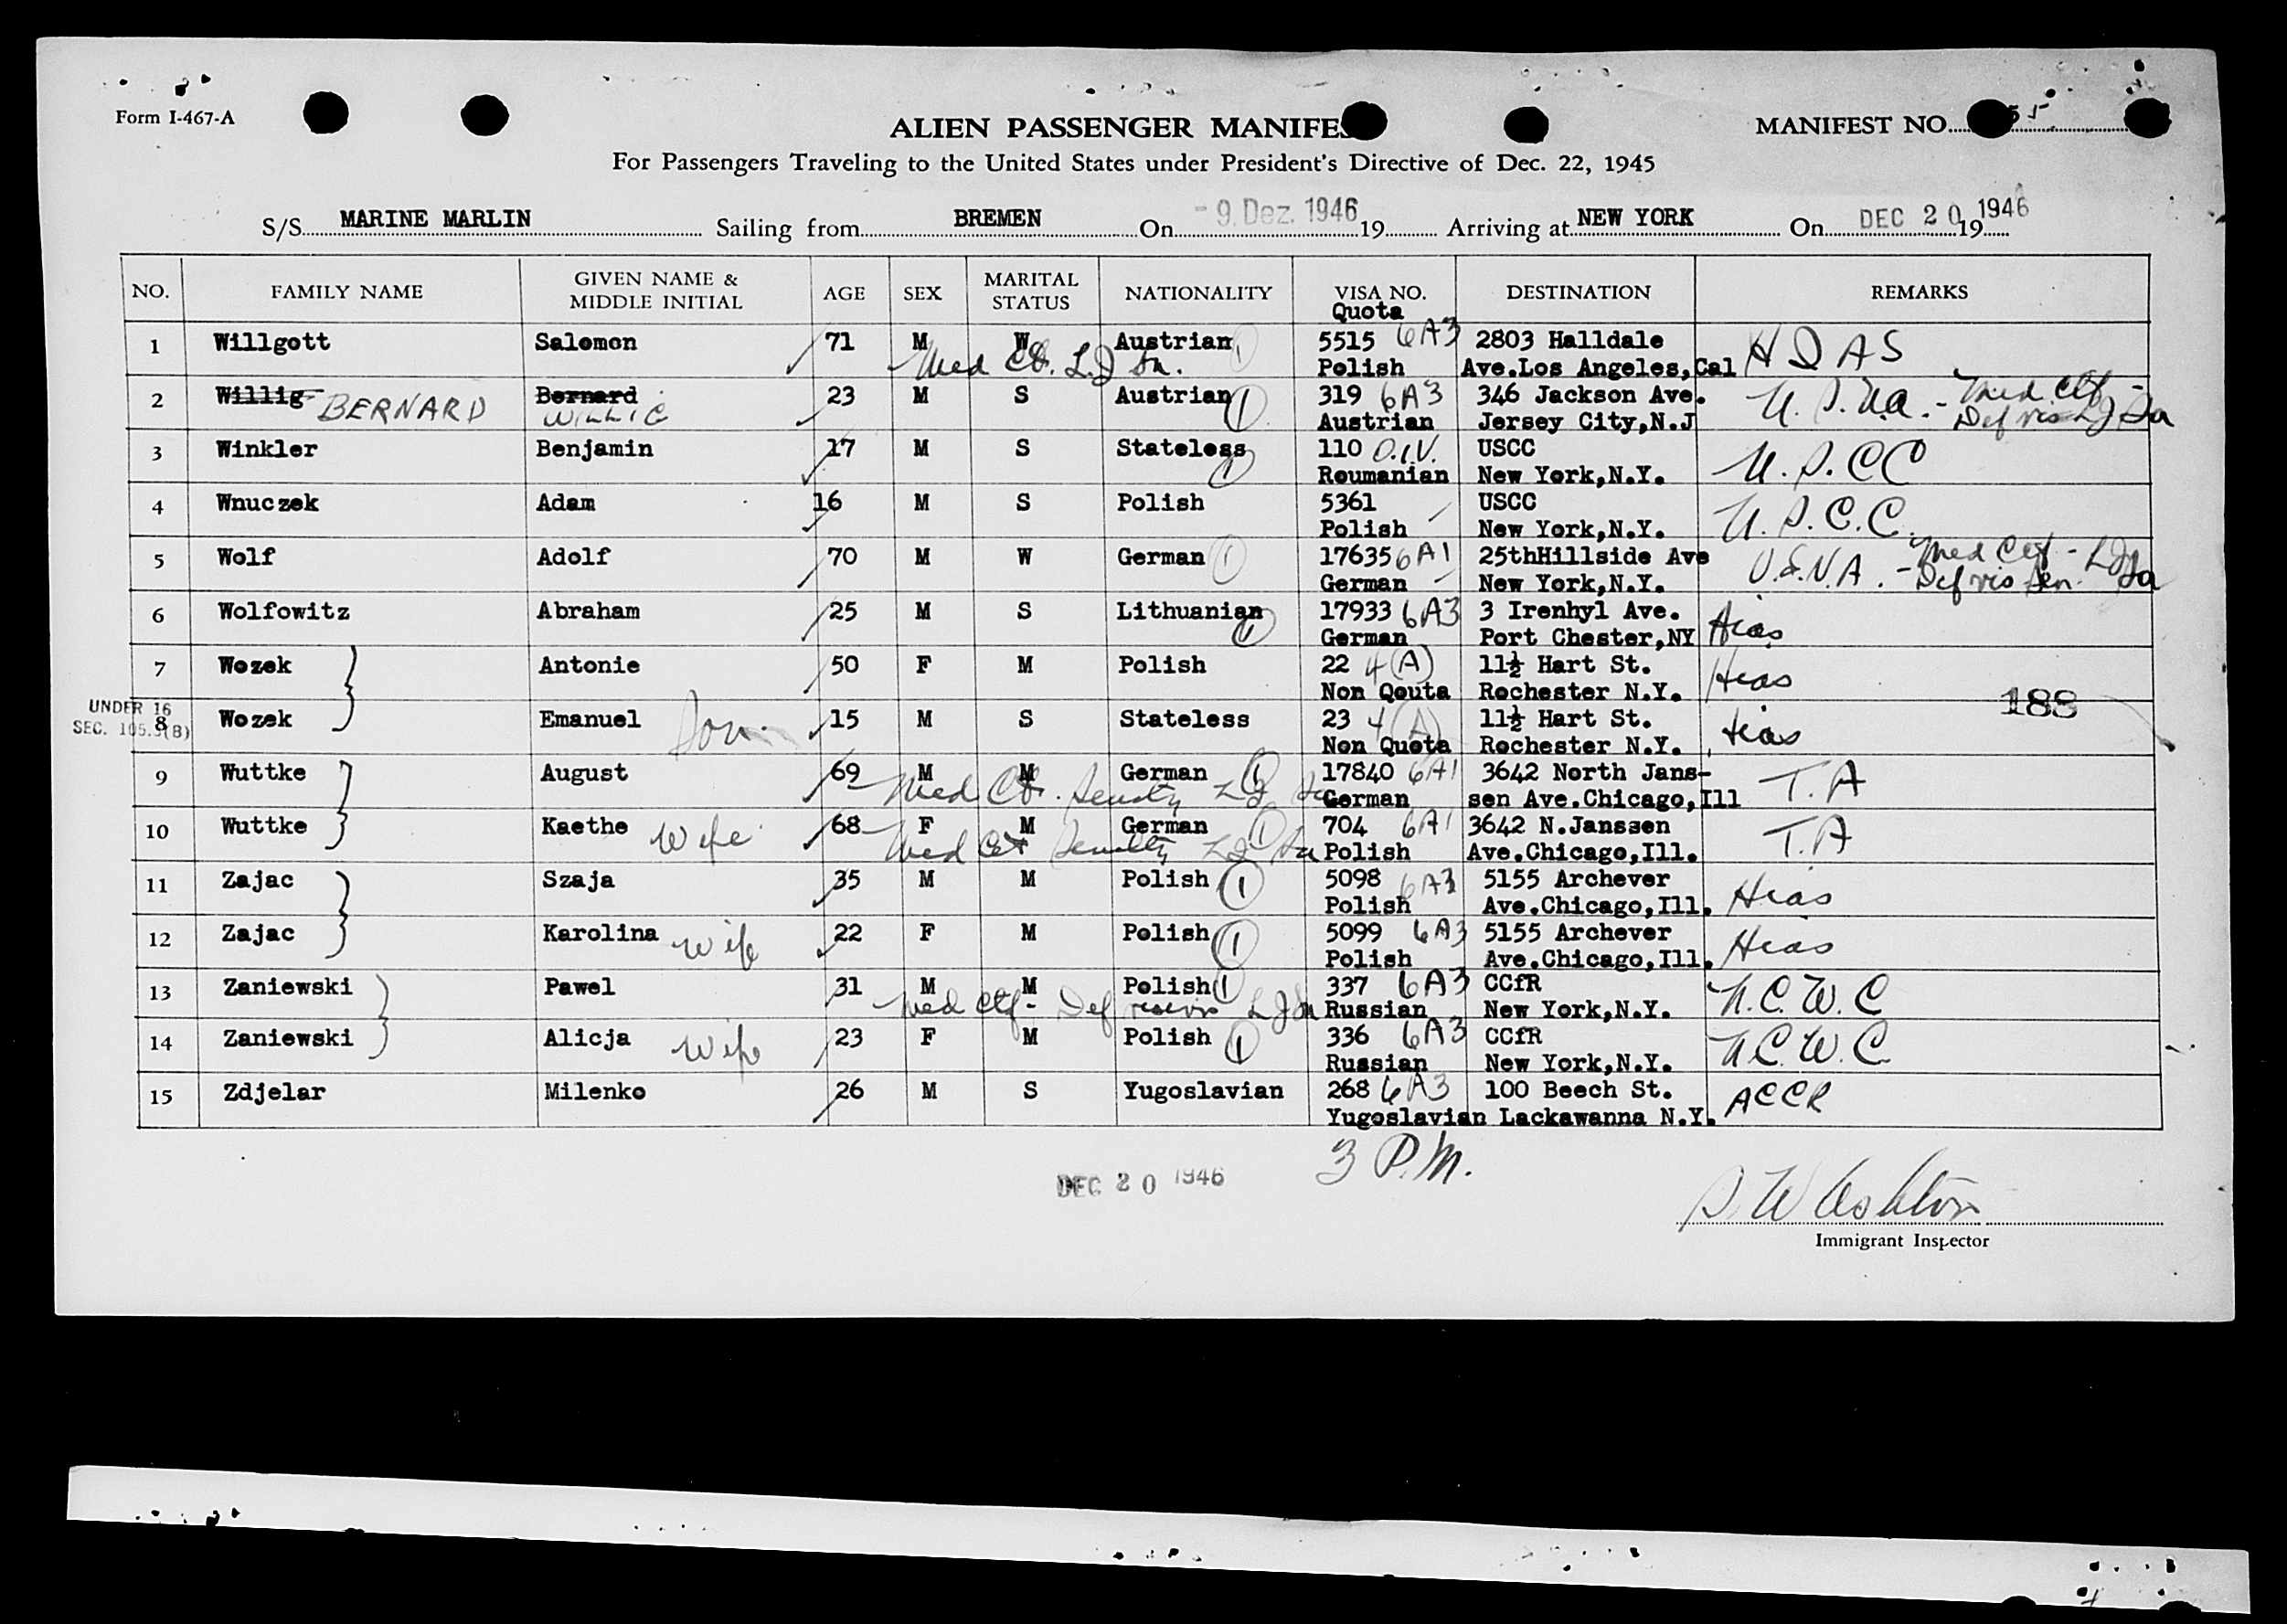 Form I-467-A
ALIEN PASSENGER MANIFES
MANIFEST NO.
For Passengers Traveling to the United States under President's Directive of Dec. 22, 1945
S/S MARINE MARLIN Sailing from BREMEN On - 9. Dez. 1946 19 Arriving at NEW YORK On DEC 20 1946 19
NO. FAMILY NAME GIVEN NAME & MIDDLE INITIAL AGE SEX MARITAL STATUS NATIONALITY VISA NO. Quota DESTINATION REMARKS
1 Willgott Salomon 71 M W Austrian 5515 6A3 2803 Halldale HIAS
Med Ctf. Polish Ave.Los Angeles,Cal
2 Willig BERNARD Bernard 23 M S Austrian 1 319 6A3 346 Jackson Ave. U.S.N.A. - Med Ctf -
WILLIG Austrian Jersey City,N.J Def vis
3 Winkler Benjamin 17 M S Stateless 110 O.I.V. USCC U.S.CC
1 Roumanian New York,N.Y.
4 Wnuczek Adam 16 M S Polish 5361 USCC U.S.C.C.
Polish New York,N.Y.
5 Wolf Adolf 70 M W German 1 17635 6A1 25thHillside Ave U.S.N.A. - Med Ctf -
German New York,N.Y. Def vis Sen.
6 Wolfowitz Abraham 25 M S Lithuanian 17933 6A3 3 Irenhyl Ave. Hias
1 German Port Chester,NY
7 Wozek Antonie 50 F M Polish 22 4(A) 11½ Hart St. Hias
Non Qouta Rochester N.Y.
183
UNDER 16
SEC. 105.3(B)
8 Wozek Emanuel Son 15 M S Stateless 23 4(A) 11½ Hart St. Hias
Non Quota Rochester N.Y.
9 Wuttke August 69 M M German 1 17840 6A1 3642 North Jans- T.A
Med Ctf. Senility German sen Ave.Chicago,Ill
10 Wuttke Kaethe Wife 68 F M German 1 704 6A1 3642 N.Janssen T.A
Med Ctf Senility Polish Ave.Chicago,Ill.
11 Zajac Szaja 35 M M Polish 1 5098 6A3 5155 Archever Hias
Polish Ave.Chicago,Ill.
12 Zajac Karolina Wife 22 F M Polish 1 5099 6A3 5155 Archever Hias
Polish Ave.Chicago,Ill.
13 Zaniewski Pawel 31 M M Polish 1 337 6A3 CCfR N.C.W.C
Med Ctf - Def Russian New York,N.Y.
14 Zaniewski Alicja Wife 23 F M Polish 1 336 6A3 CCfR N.C.W.C
Russian New York,N.Y.
15 Zdjelar Milenko 26 M S Yugoslavian 268 6A3 100 Beech St. ACCR
Yugoslavian Lackawanna N.Y.
3 P.M.
DEC 20 1946
S W Ashton
Immigrant Inspector